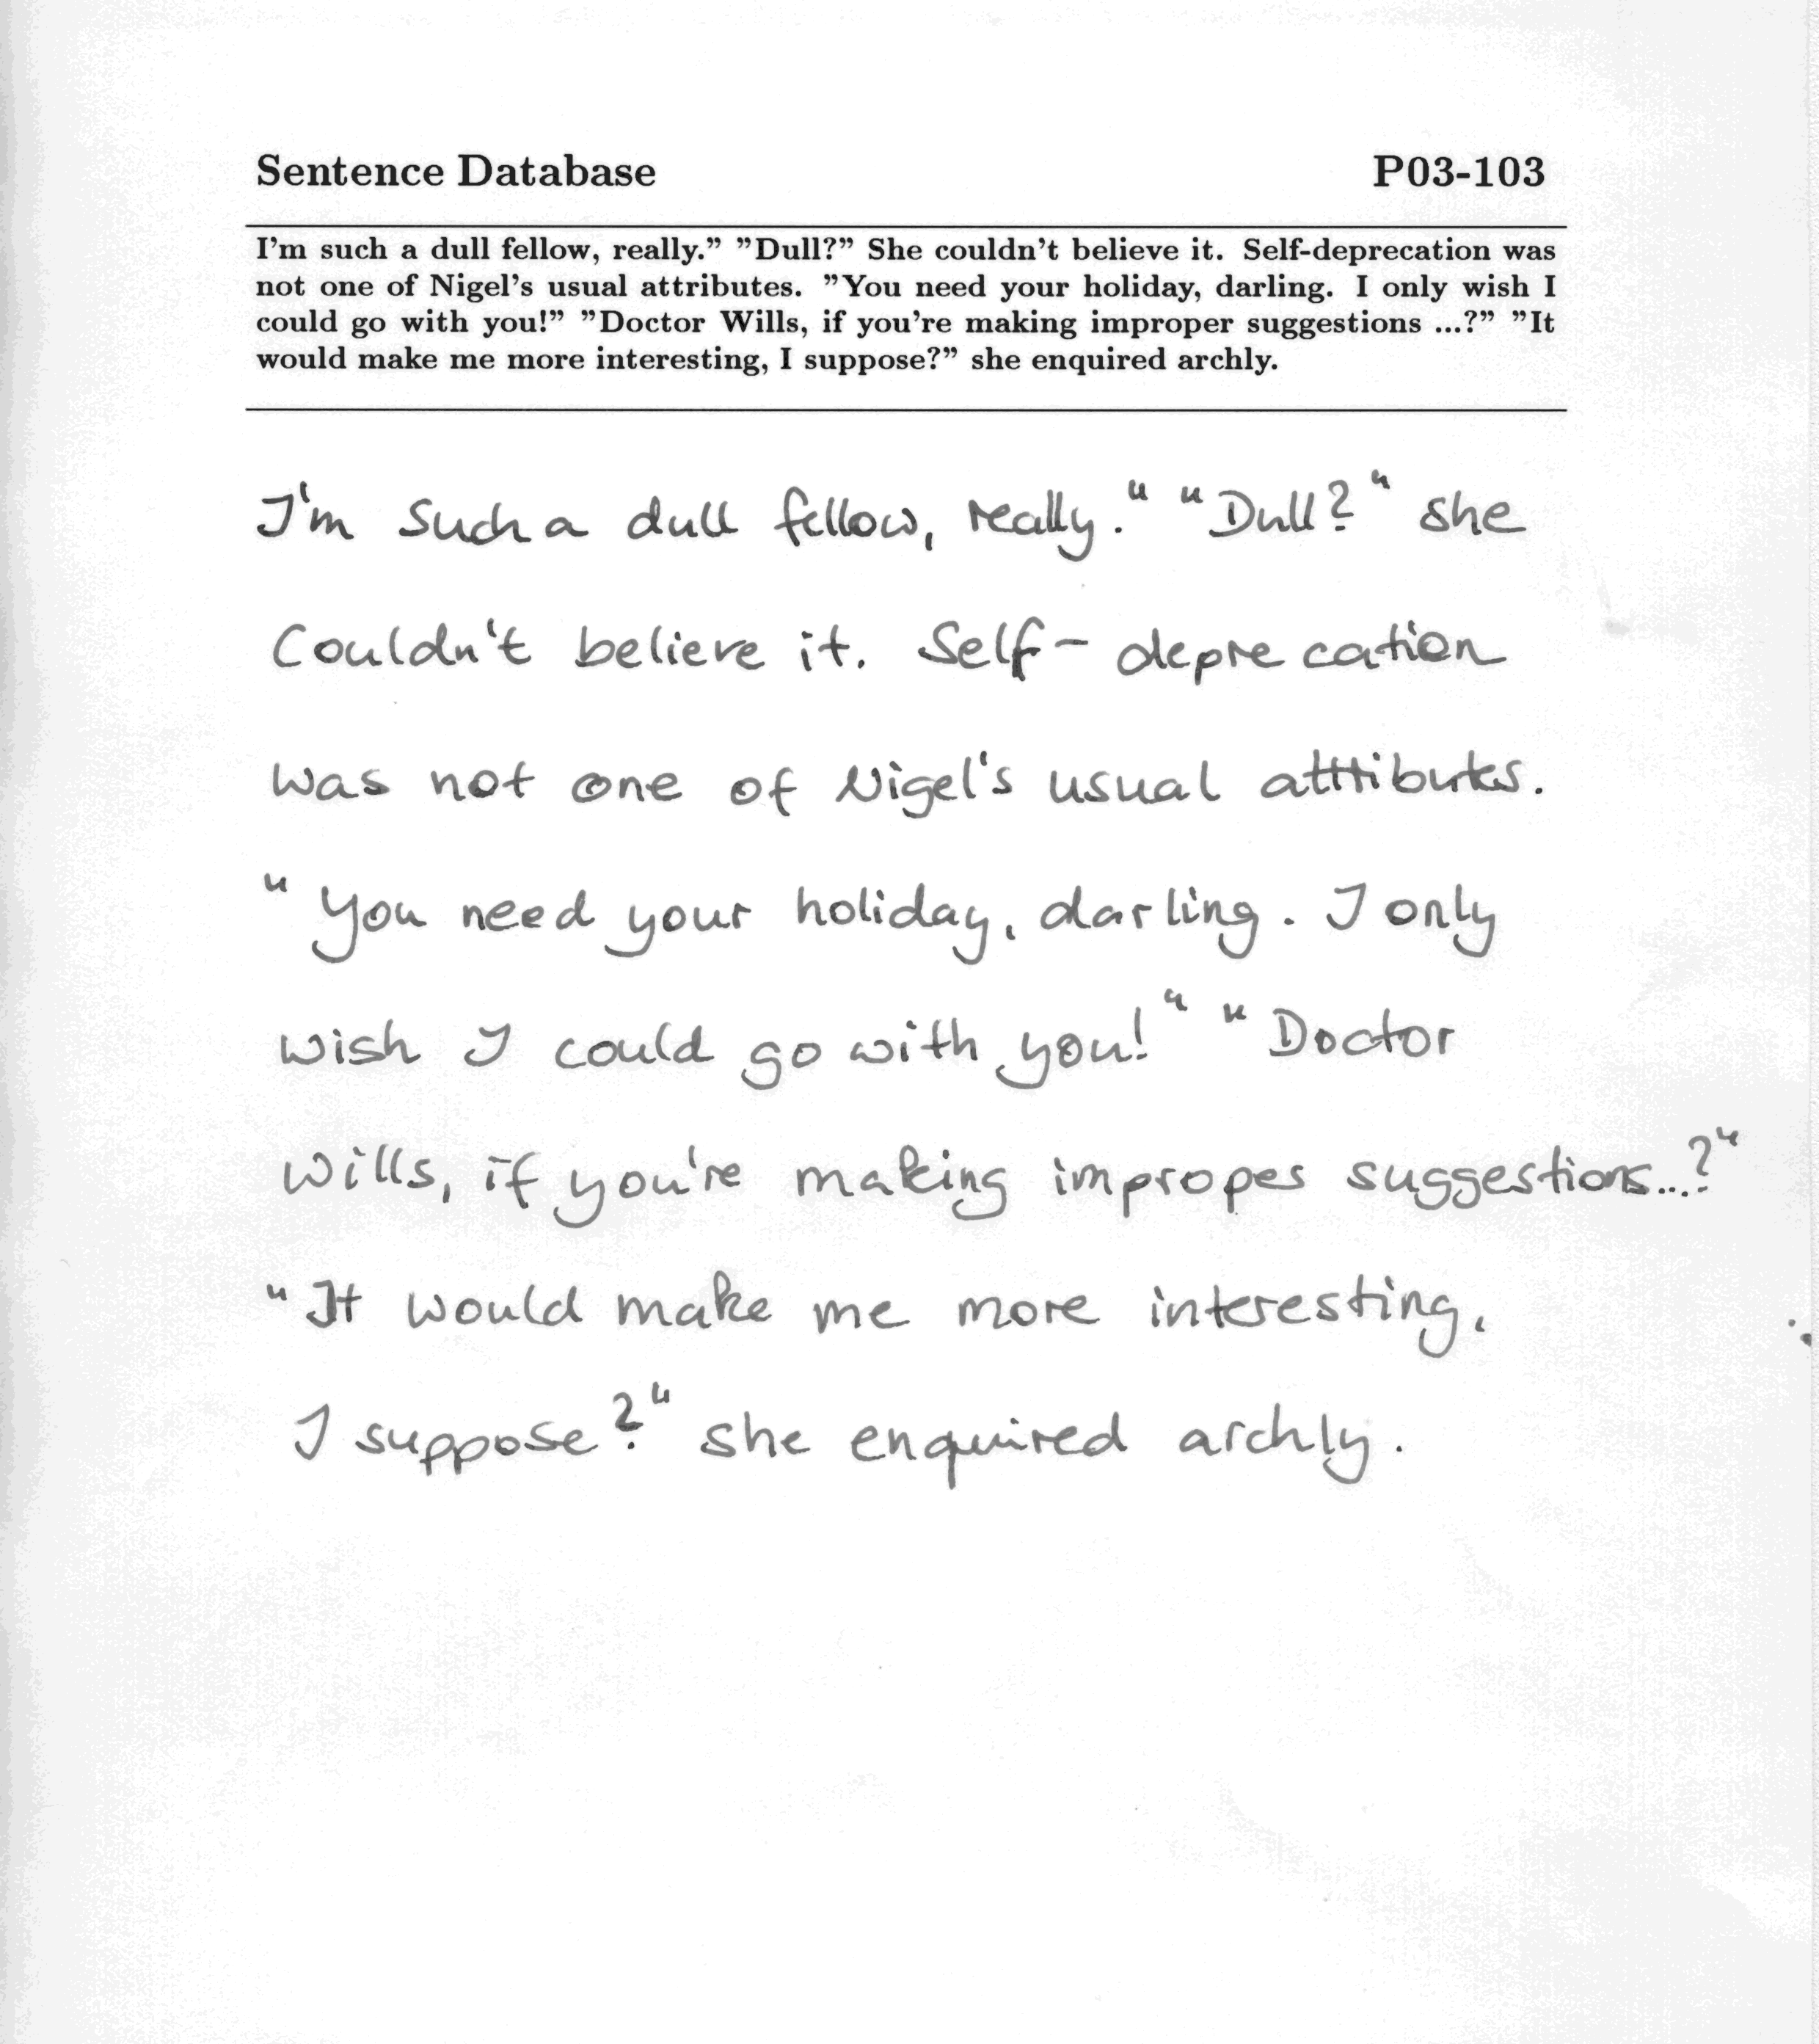 Sentence Database P03-103
I'm such a dull fellow, really.” ”Dull?” She couldn't believe it. Self-deprecation was
not one of Nigel's usual attributes. ”You need your holiday, darling. I only wish I
could go with you!” ”Doctor Wills, if you're making improper suggestions ...?” ”It
would make me more interesting, I suppose?” she enquired archly.
I'm such a dull fellow, really." "Dull?" she
Couldn't believe it. Self-deprecation
was not one of Nigel's usual attributes.
"You need your holiday, darling. I only
wish I could go with you!" "Doctor
Wills, if you're making impropes suggestions...?"
"It would make me more interesting,
I suppose?" she enquired archly.